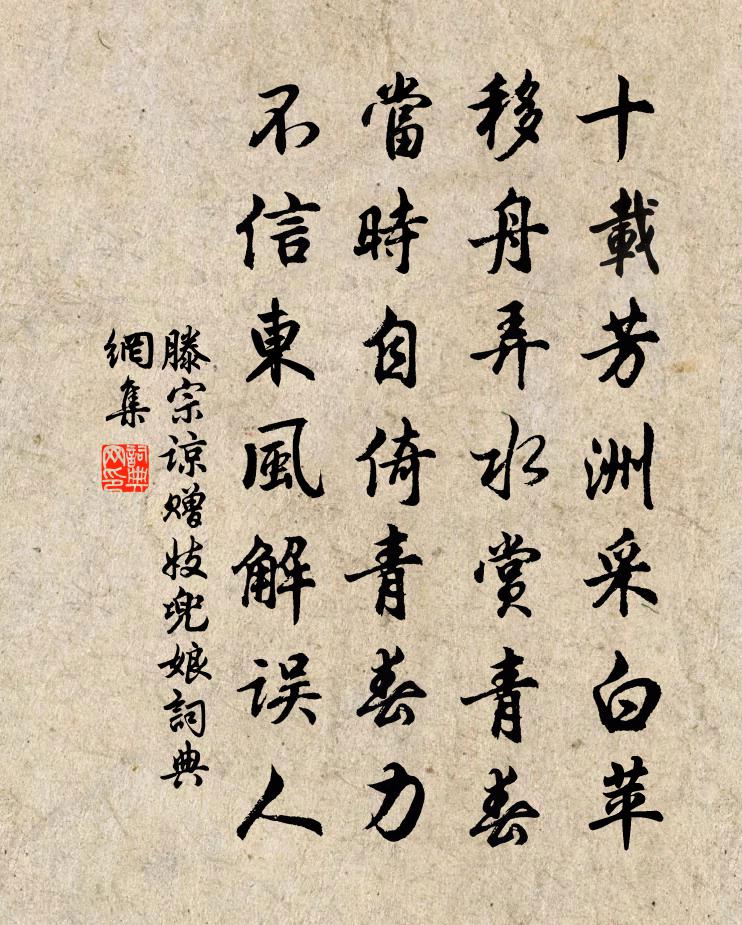 十載芳洲采白苹
移舟弄水赏青春
當時自倚青春力
不信東風解误人
滕宗谅赠妓兜娘詞典
網集
詞典
网印